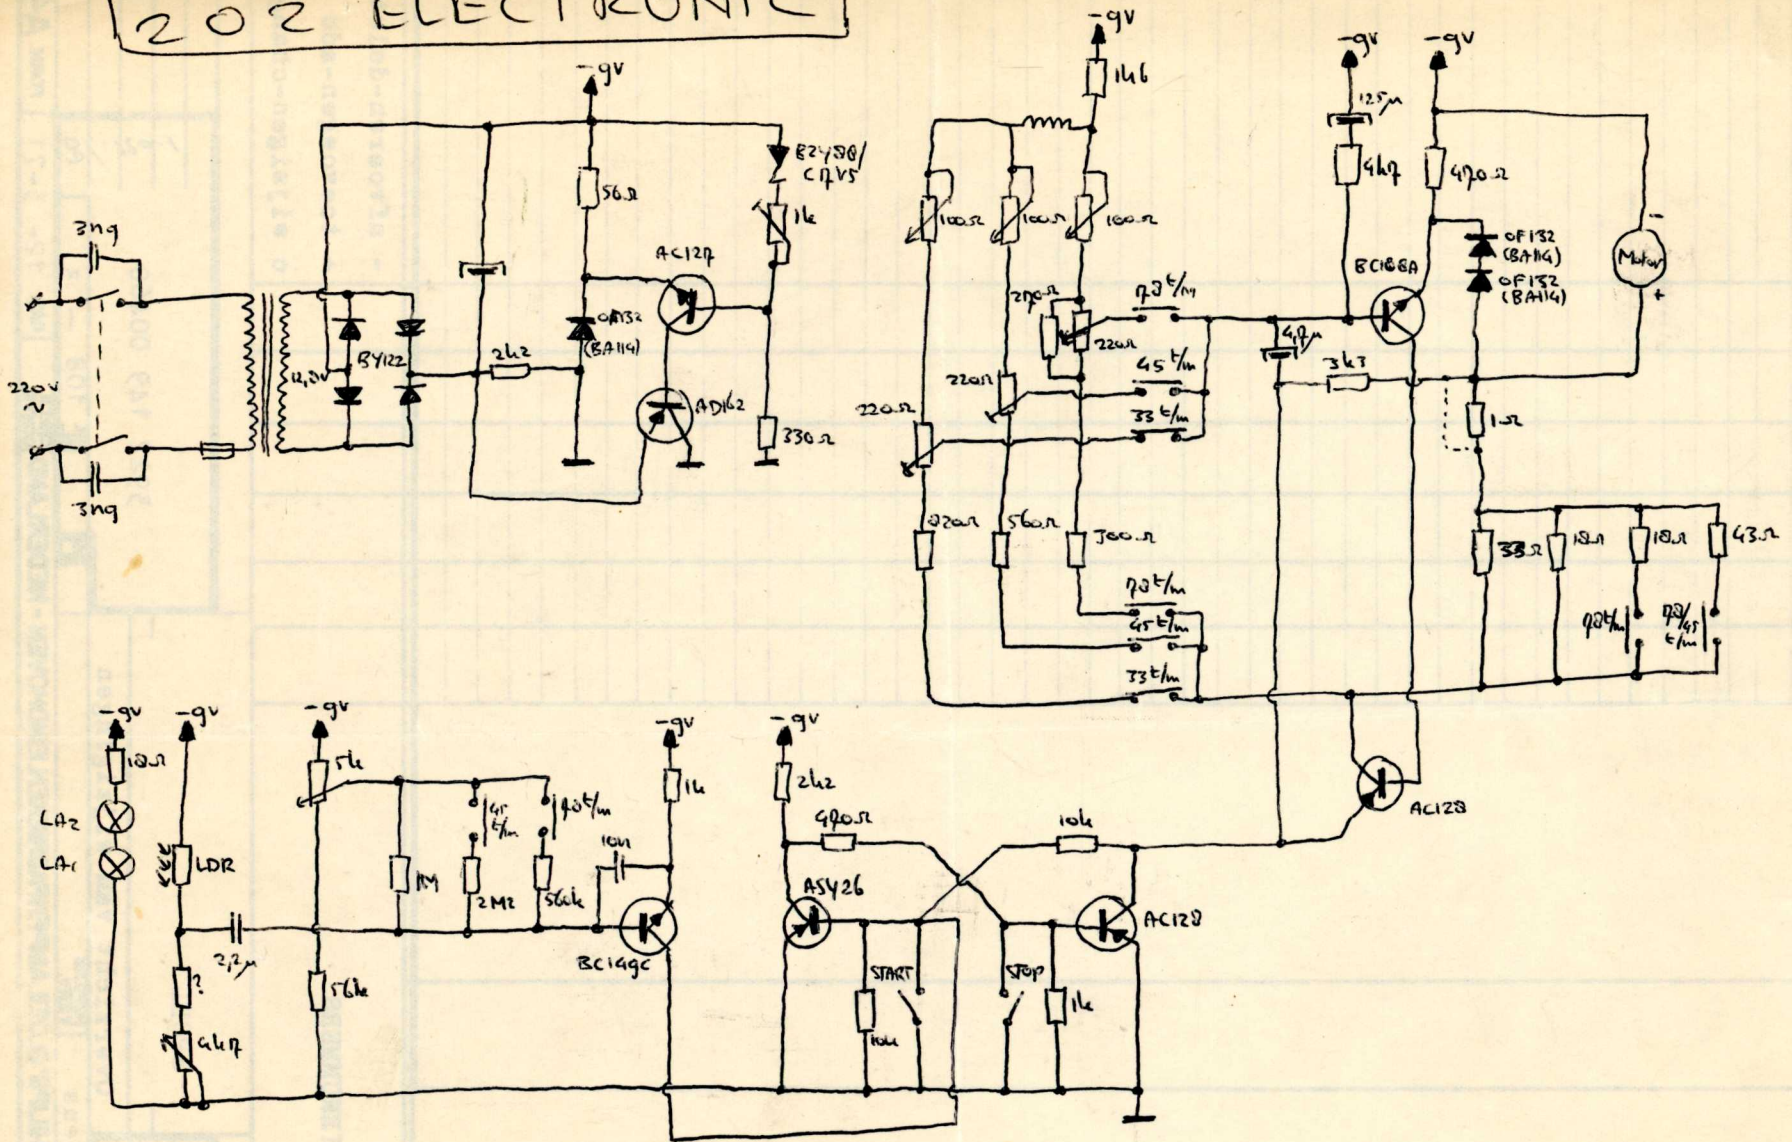 202 ELECTRONIC
-9V
3n9
220V
~
3n9
12,8V
BY122
2k2
56Ω
(BA114)
AC127
AD162
1k
330Ω
-9V
1k6
100Ω
100Ω
100Ω
270Ω
220Ω
220Ω
220Ω
78t/m
45t/m
33t/m
820Ω
560Ω
300Ω
78t/m
45t/m
33t/m
-9V
125μ
4k7
-9V
470Ω
OF132
(BA114)
OF132
(BA114)
Motor
-
+
4,7μ
3k3
1Ω
33Ω
18Ω
18Ω
43Ω
78t/m
78/45
t/m
AC128
-9V
18Ω
LA2
LA1
-9V
LDR
2,2μ
?
4k7
-9V
5k
56k
1M
45
t/m
2M2
78t/m
560k
10n
-9V
1k
BC149C
-9V
2k2
470Ω
ASY26
10k
START
10k
STOP
1k
AC128